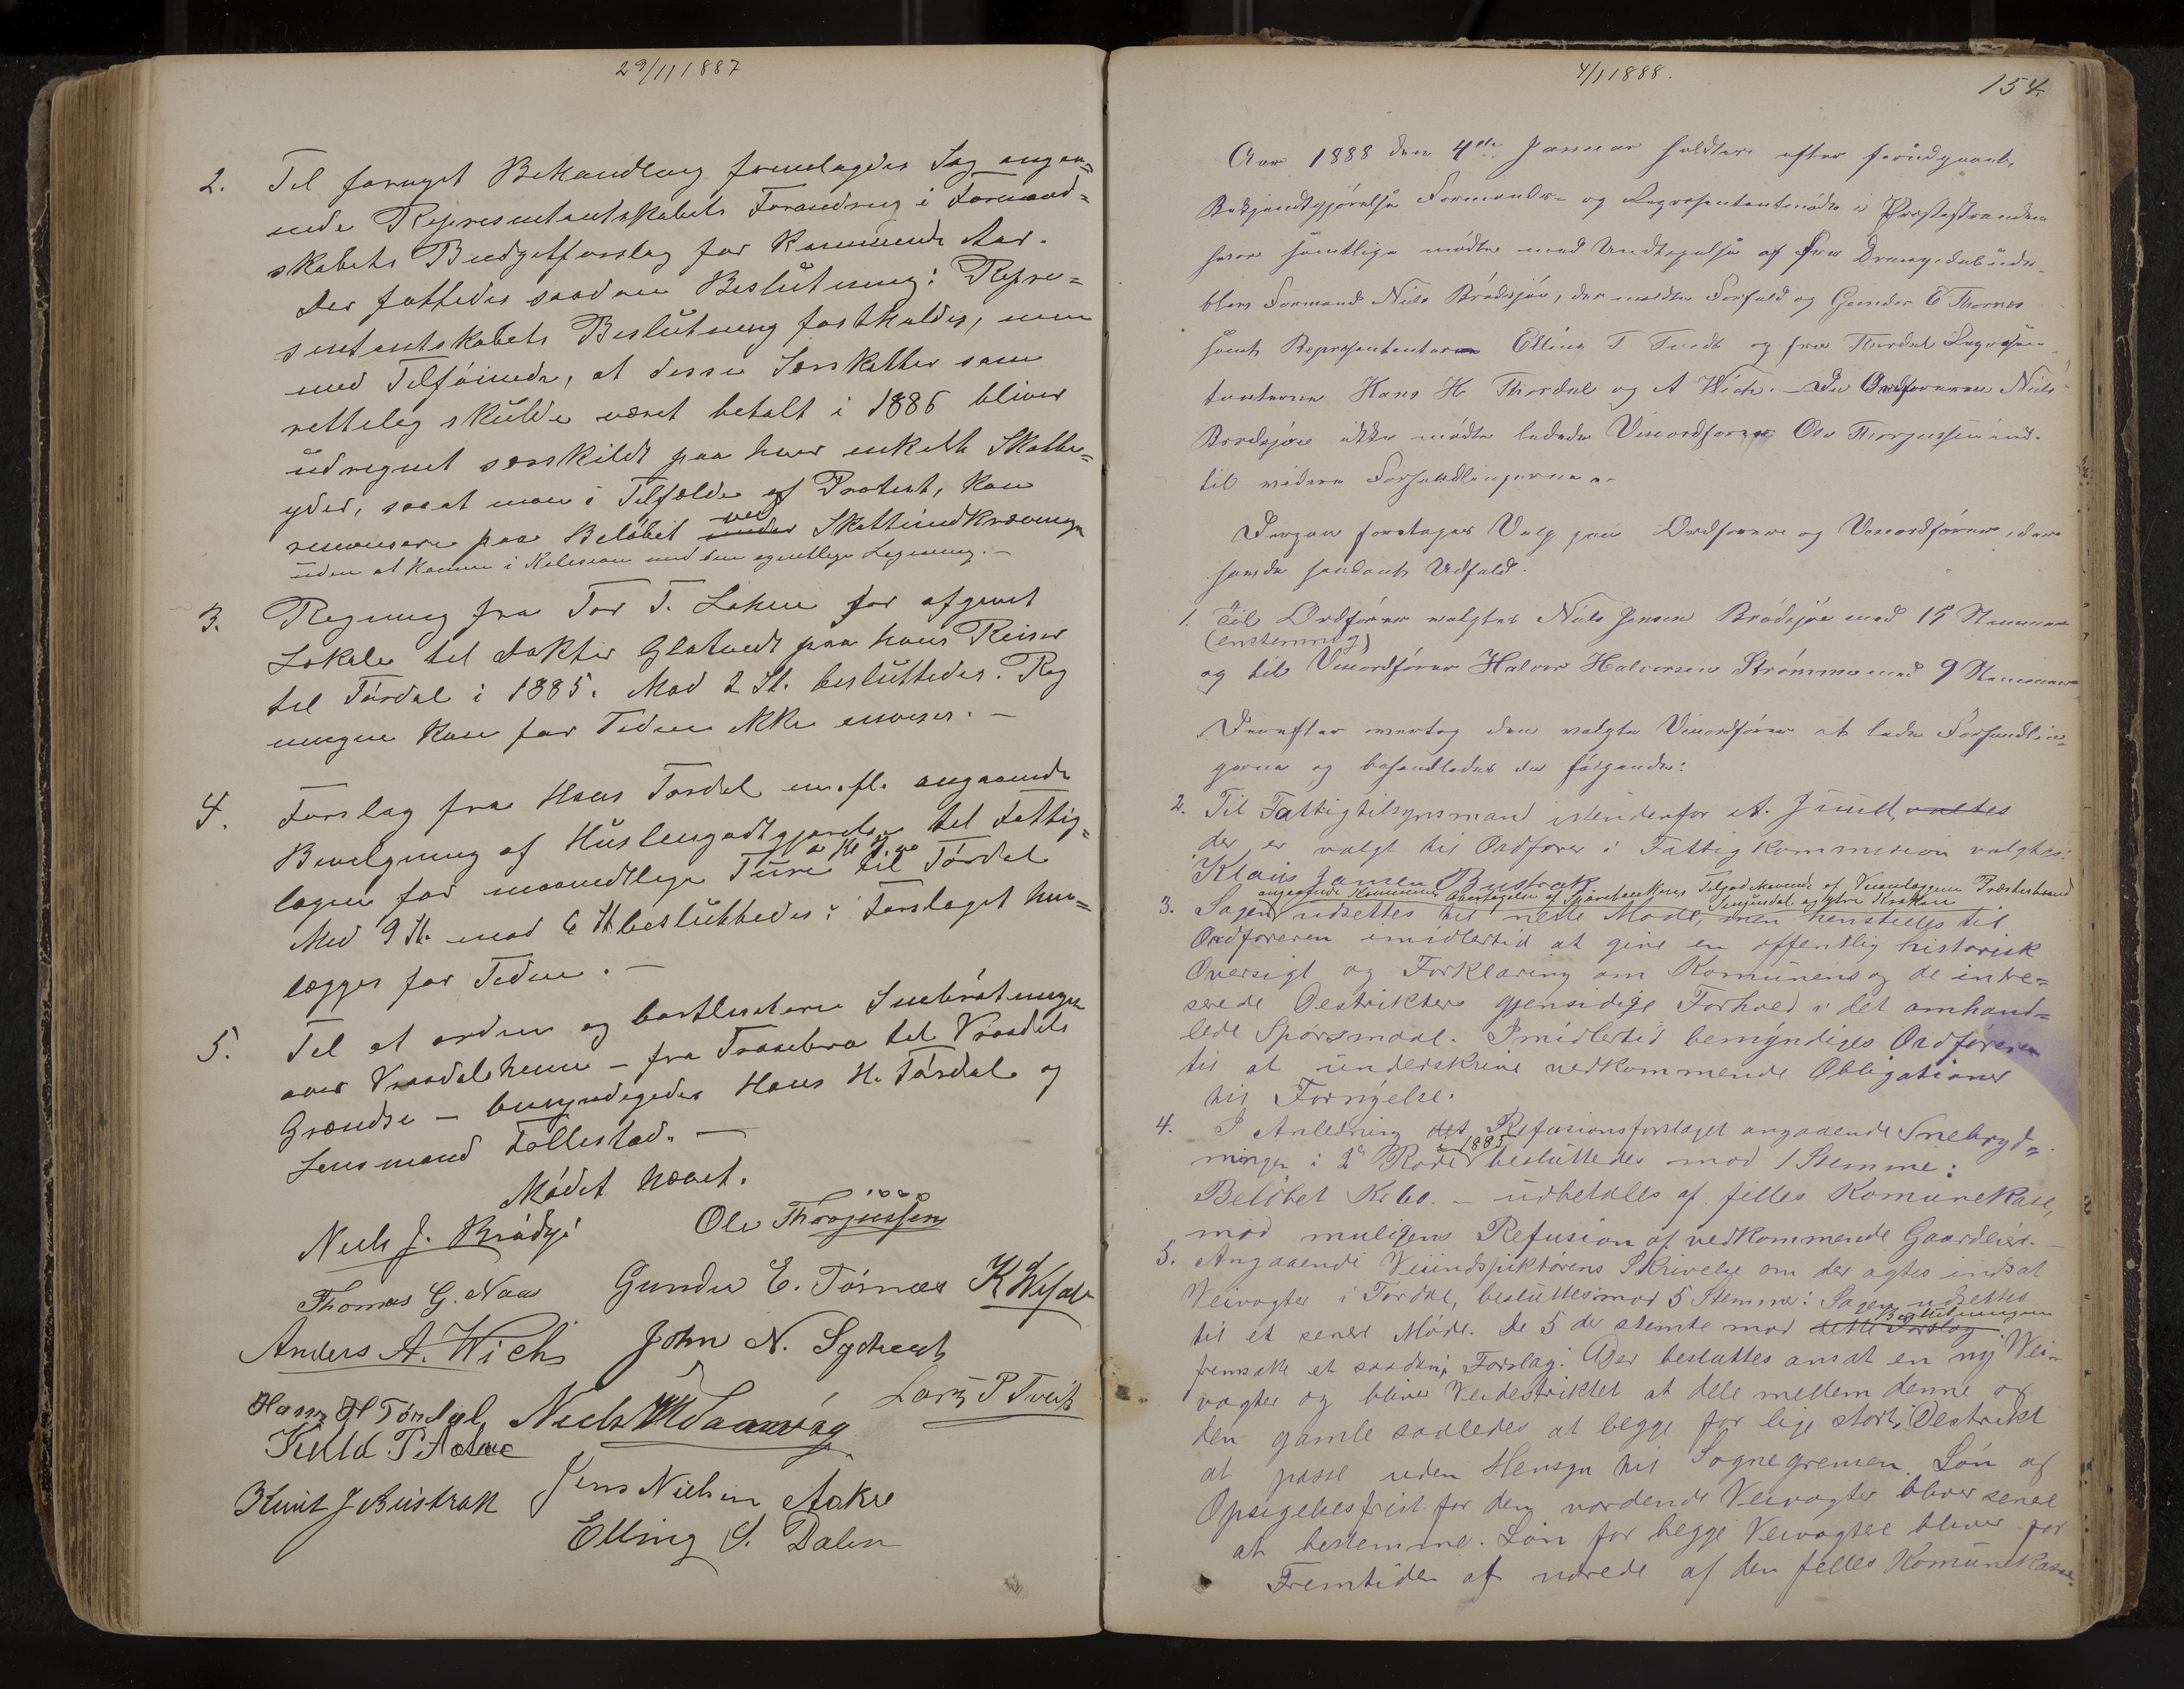 29/11 1887
2. Til fornyet Behandling forelagdes Sag angaa=
ende Representantskabets Forandring i Formand=
skabets Budgetforslag for kommende Aar.
Der fattedes saadan Beslutning: Repre=
sentantskabets Beslutning fastholdes, men
med Tilföiende, at disse Særskatter som
rettelig skulde været betalt i 1886 bliver
udregnet særskildt paa hver enkelt Skatte=
yder, saaat man i Tilfælde af Protest, kan
renonsere paa Belöbet under ved Skatteindkrævningen
uden at komme i Kolision med den egentlige Ligning. –
3. Regning fra Tor T. Lohne for afgivet
Lokale til Doktor Glatvedt paa hans Reiser
til Tördal i 1885. Mod 2 St. besluttedes: Reg
ningen kan for Tiden ikke anvises. –
4. Forslag fra Hans Tördal m. fl. angaaende
Bevilgning af Huslengodtgjørelse til Fattig=
lægen for maanedlige Ture til Tördal
Med 9 St. mod 6 St besluttedes: Forslaget hen=
lægges for Tiden. –
5. Til at ordne og bortlicitere Snebrötningen
over Vraadalsheien – fra Trasebro til Vraadals
Grændse – bemyndigedes Hans H. Tördal og
Lensmand Follestad. –
Mödet hævet.
Niels J. Brödsjö Ole Thorjussen
Thomas G. Naas Gunder E. Törnæs K Wefald
Anders A. Wiche John N. Sydtveit
Hans H Tördal, Niels Lars P Tveit
Aakre
Knut J Bustrak Jens Nielsen Aakre
Elling S. Dalen
4/1 1888.
154.
Aar 1888 den 4de Januar holdtes efter forudgaaende
Bekjendtgjörelse Formands- og Representantmöde i Præstestranden
hvor samtlige mödte med Undtagelse af fra Drangedal
Formand Niels Brödsjöe, der meldte Forfald og Gunder E Thornes
samt Representanterne Elling T Tvedt og fra Tördal Represen
tanterne Hans H. Thördal og A Wiche. – Da Ordföreren Niels
Brødsjøe ikke mödte ledede Viceordförer Ole Thorjussen ind-
til videre Forhandlingerne. –
Dergaa foretages Valg paa Ordförer og Viceordförer, der
havde saadant Udfald.
1. Til Ordförer valgtes Niels Jensen Brödsjöe med 15 Stemmer
(enstemmig)
og til Viceordförer Halvor Halvorsen Strömme med 9 Stemmer
Derefter overtog den valgte Viceordförer at lede Forhandlin=
gerne og behandledes der fölgende:
2. Til Fattigtilsynsmand istedenfor A. Juvell, valtes
der er valgt til Ordfører i Fattigkommision valgtes:
Klaus Jansen Bustrak
angaaende Kommunens Overtagelse af Sparebankens Tilgodehavende af Veianlæggene Præstestrand
3. Sagen udsettes til neste Möde, men henstilles til
Ordføreren imidlertid at give en offentlig historisk
Oversigt og Forklaring om Komunens og de intre=
serede Destrikters gjensidige Forhold i det omhand=
lede Spørsmaal. Imidlertid bemyndiges Ordføreren
til at underskrive vedkommende Obligationer
til Fornyelse.
4. I Anledning det Refusionsforslaget angaaende Snebryd=
ninger i 2n Rode i 1885 besluttedes mod 1 Stemme:
Belöbet Kr 60. – udbetales af felles Komunekase,
mod muligens Refusion af vedkommende Gaardeier. –
5. Angaaende Veiindspiktörens Skrivelse om der agtes indsat
Veivogter i Tördal, besluttes mod 5 Stemmer: Sagen udsettes
til et senere Möde. De 5 der stemte mod dette Forslag Beslutningen
fremsatte et saadant Forslag: Der besluttes ansat en ny Vei=
vogter og bliver Veidestriktet at dele mellem denne og
den gamle saaledes at begge faar lige stort Destrikt
at passe uden Hensyn til Sognegrensen. Lön og
Opsigelsesfrist for den vordende Veivogter bliver senere
at bestemme. Lön for begge Veivogtere bliver for
Fremtiden at utrede af den felles Komunekasse.